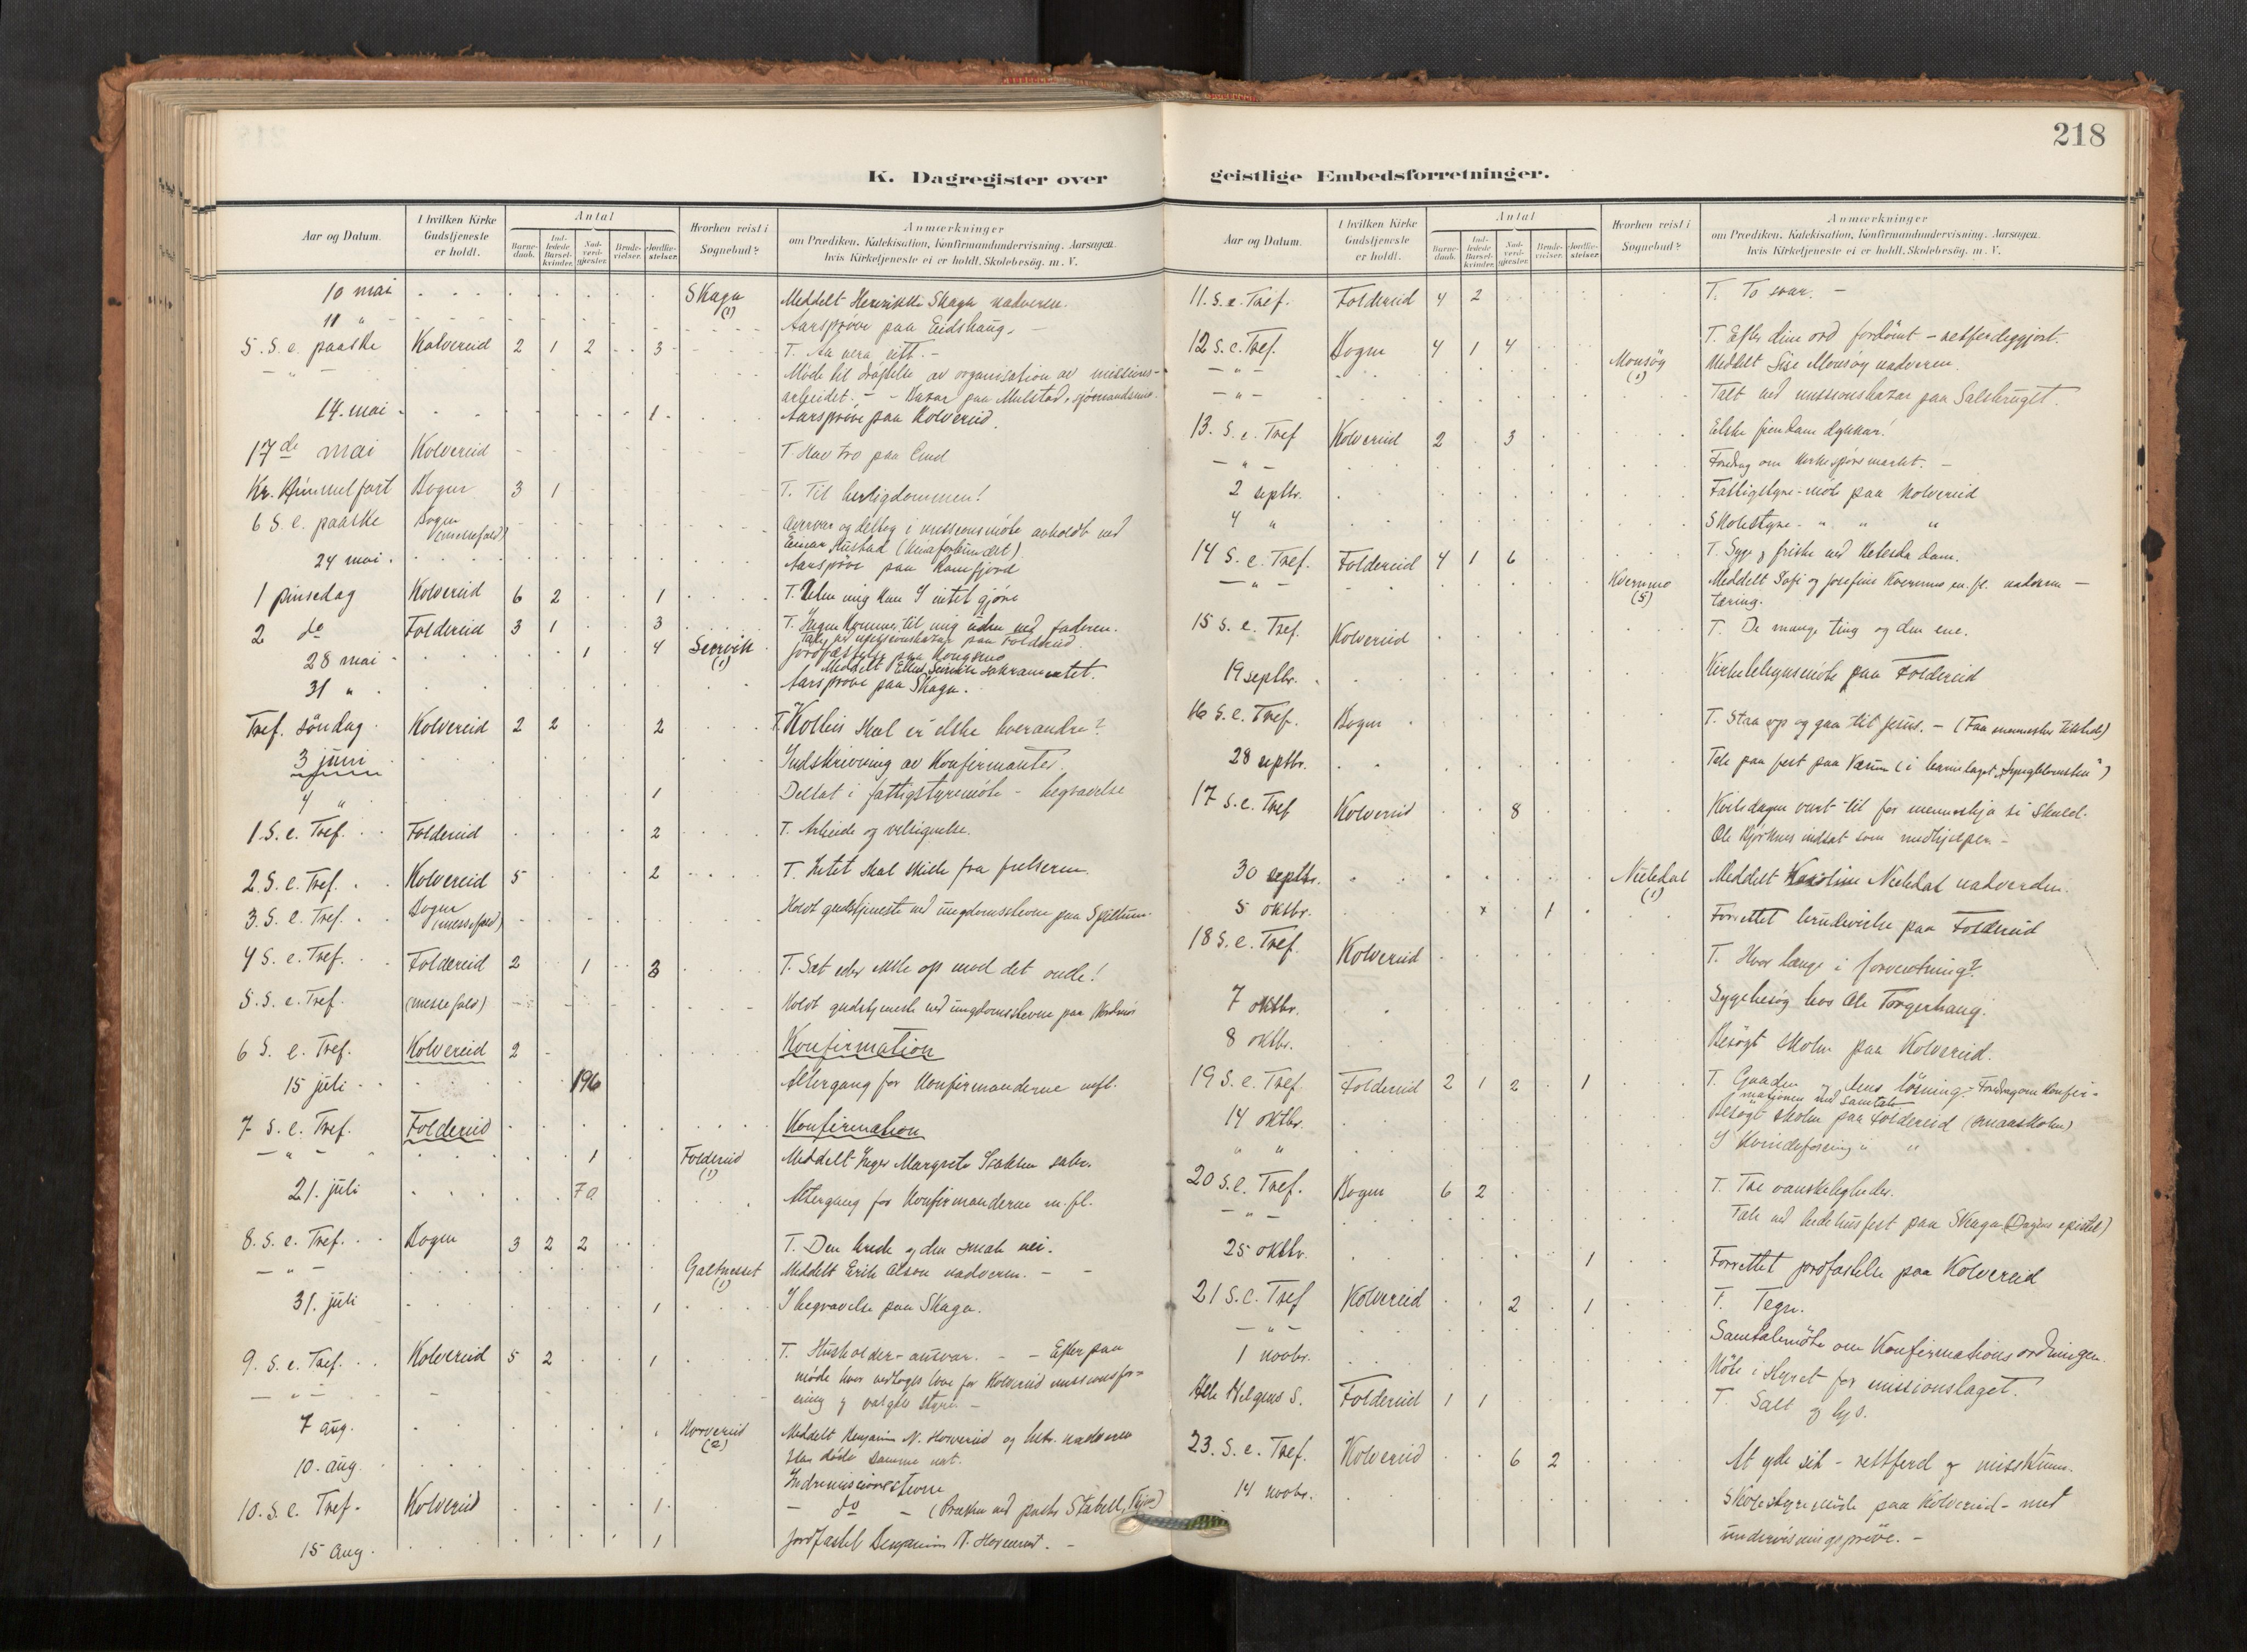 218
K. Dagregister over geistlige Embedsforretninger.
Aar og Datum.
I hvilken Kirke Gudstjeneste er holdt.
Antal
Barne-daab.
Ind-ledede Barsel-kvinder.
Nad-verd-gjæster.
Brude-vielser.
Jordfæ-stelser.
Hvorhen reist i Sognebud?
Anmærkninger
om Prædiken, Katekisation, Konfirmandundervisning. Aarsagen.
hvis Kirketjeneste ei er holdt. Skolebesøg. m. V.
10 mai Skaga (1) Meddelt Henrikke Skaga nadveren.
11 " Aarsprøve paa Eidshaug. -
5. S. e. paaske Kolvereid 2 1 2 3 T. Aa vera eitt. -
- " - Møde til drøftelse av organisation av missions-
arbeidet. - - Basar paa Mulstad, sjømandsmis.
14. mai 1 Aarsprøve paa Kolvereid.
17de mai Kolvereid T. Hav tro paa Gud
Kr. Himmelfart Bogen 3 1 T. Til herligdommen!
6 S. e. paaske Bogen (messefald) Overvar og deltog i missionsmøte avholdt ved
Einar Hustad (Kinaforbundet)
24 mai Aarsprøve paa Ramfjord
1 pinsedag Kolvereid 6 2 1 T. Uten mig kan I intet gjøre
2 do Foldereid 3 1 3 T. Ingen kommer til mig uden ved faderen.
Tale ved missionsbazar paa Foldereid.
28 mai 1 4 Servik (1) Jordfæstelse paa Kongsmo
Meddelt Ellen Servik sakramentet.
31 " Aarsprøve paa Skaga.
Tref. søndag Kolvereid 2 2 2 T. Hvorlies skal vi elske hverandre?
3 juni Indskrivning av Konfirmanter.
4 " 1 Deltat i fattigstyremøte - begravelse
1 S. e. Tref. Foldereid 2 T. Arbeide og velsignelse.
2. S. e. Tref. Kolvereid 5 2 T. Intet skal skille fra frelseren.
3. S. e. Tref. Bogen (messefald) Holdt gudstjeneste ved ungdomsstevne paa Spillum.
4 S. e. Tref. Foldereid 2 1 3 T. Sæt eder ikke op mod det onde!
5. S. e. Tref. (messefald) Holdt gudstjeneste ved ungdomsstevne paa
6 S. e. Tref. Kolvereid 2 Konfirmation
15 juli 196 Altergang for Konfirmanderne mfl.
7 S. e. Tref. Foldereid Konfirmation
- " - 1 Foldereid (1) Meddelt Inger Margrete sakr.
21. juli 70 Altergang for Konfirmanderne m. fl.
8. S. e. Tref. Bogen 3 2 2 T. Den brede og den smale vei.
- " - Galtnesset (1) Meddelt Erik Olsen nadveren. - -
31. juli 1 I begravelse paa Skaga.
9. S. e. Tref. Kolvereid 5 2 1 T. Husholder-ansvar. - - Efterpaa
- " - møde hvor vedtoges love for Kolvereid missionsfor-
ening og valgtes styre. -
7 aug. Horvereid (2) Meddelt Benjamin N. Horvereid og hstr. nadveren
Han døde samme nat.
10. aug. Indremissionsstevne
10. S. e. Tref. Kolvereid 1 - do - (Præken ved pastor Stabell,
15 aug. 1 Jordfæstet Benjamin N. Horvereid. -
Aar og Datum.
I hvilken Kirke Gudstjeneste er holdt.
Antal
Barne-daab.
Ind-ledede Barsel-kvinder.
Nad-verd-gjæster.
Brude-vielser.
Jordfæ-stelser.
Hvorhen reist i Sognebud?
Anmærkninger
om Prædiken, Katekisation, Konfirmandundervisning. Aarsagen.
hvis Kirketjeneste ei er holdt. Skolebesøg. m. V.
11. S. e. Tref. Foldereid 4 2 T. To svar. -
12 S. e. Tref. Bogen 4 1 4 T. Efter dine ord fordømt - retferdiggjort.
- " - Monsøy (1) Meddelt Sise Monsøy nadveren.
- " - Talt ved missionsbazar paa Salsbruget.
13. S. e. Tref Kolvereid 2 3 Elske fiendane dykkar!
- " - Foredrag om kirkespørsmaalet. -
2 septbr. Fattigstyre-møte paa Kolvereid
4 " Skolestyre- " " "
14 S. e. Tref. Foldereid 4 1 6 T. Syge og friske ved Betesda dam.
- " - Kvernmo (5) Meddelt Sofie og Josefine Kvernmo m. fl. nadveren -
tæring.
15 S. e. Tref. Kolvereid T. De mange ting og den ene.
19 septbr. Kirketilsynsmøte paa Foldereid
16 S. e. Tref. Bogen T. Staa op og gaa til Jesus. - (Faa mennesker tilstede)
28 septbr. Tale paa fest paa Værum (i barnelaget "Syngblomsten")
17 S. e. Tref Kolvereid 8 Kviledagen vart til for menneskja si skuld.
Ole Bjørknes indsat som medhjelper -
30 septbr. Nubdal (1) Meddelt Karoline Nubdal nadverden.
5 oktbr. x 1 Forrettet brudevielse paa Foldereid
18 S. e. Tref. Kolvereid T. Hvor længe i forventning?
7 oktbr. Sygebesøg hos Ole Torgerhaug.
8 oktbr. Besøgt skolen paa Kolvereid.
19 S. e. Tref. Foldereid 2 1 2 1 T. Gaaden og dens løsning. Foredrag om Konfir-
mationen med samtale
14 oktbr. Besøgt skolen paa Foldereid (smaaskolen)
" " I Kvindeforening " "
20 S. e. Tref. Bogen 6 2 T. Tre vanskeligheder.
- " - Tale ved bedehusfest paa Skaga (Dagens epistel)
25 oktbr. 1 Forrettet jordfæstelse paa Kolvereid
21 S. e. Tref Kolvereid 2 1 T. Tegn.
- " - Samtalemøte om Konfirmationsordningen.
1 novbr. Møte i styret for missionslaget.
Alle Helgens S. Foldereid 1 1 T. Salt og lys.
23. S. e. Tref. Kolvereid 6 2 At gjøre ret - rettferd og misskunn.
14 novbr. Skolestyremøte paa Kolvereid - med
undervisningsprøve. -